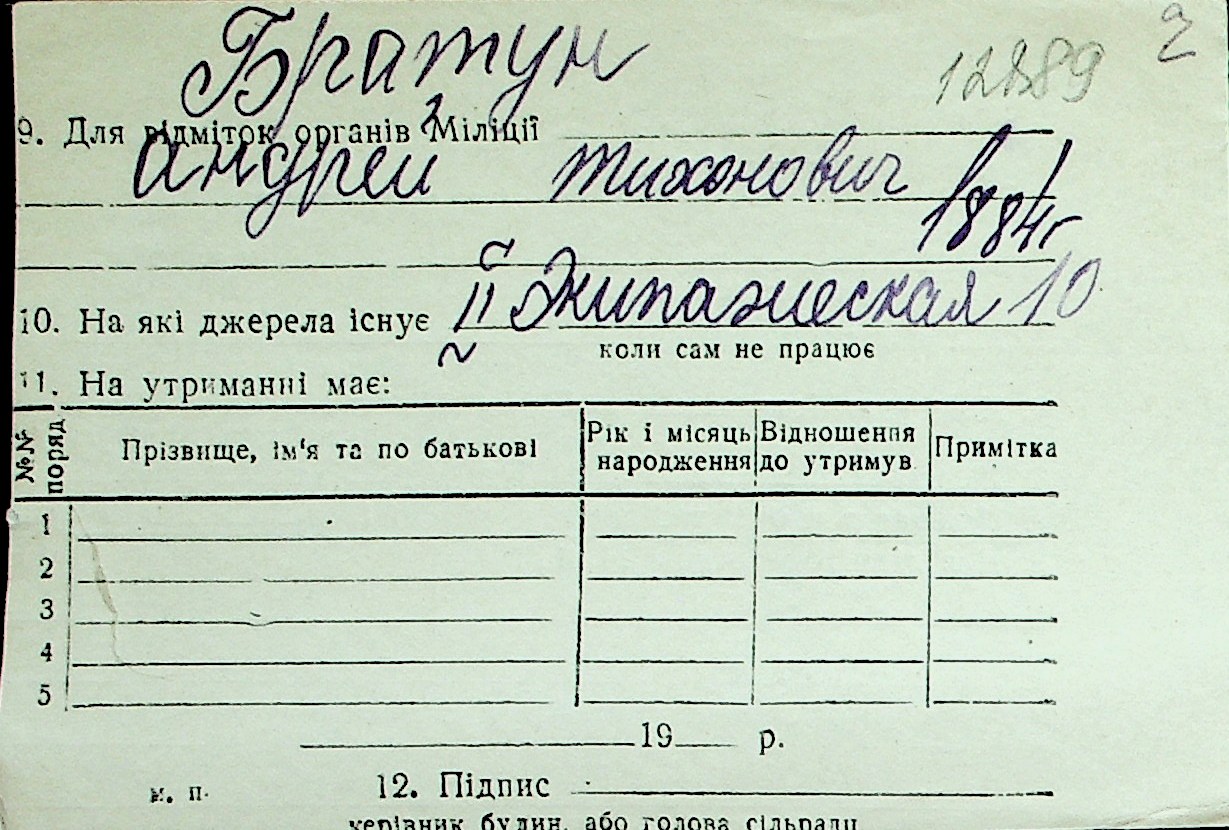 Братун
12889
2
9. Для відміток органів Міліції
Андрей Тихонович
1884 г
10. На які джерела існує II Экипажеская 10
коли сам не працює
11. На утриманні має:
№№ поряд
Прізвище, ім'я та по батькові
Рік і місяць народження
Відношення до утримув.
Примітка
1
2
3
4
5
19 р.
м. п.
12. Підпис
керівник будин. або голова сільради